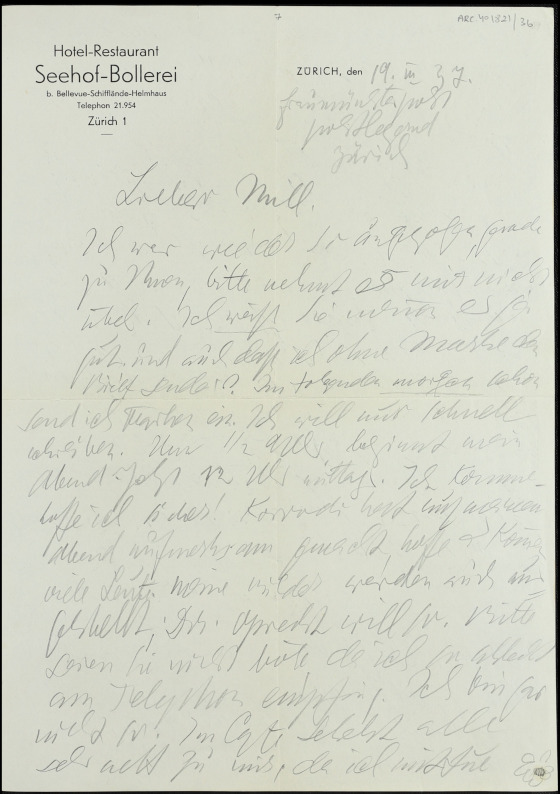 7
ARC. 40 1821/36
Hotel-Restaurant
Seehof-Bollerei
b. Bellevue-Schifflände-Helmhaus
Telephon 21.954
Zürich 1
ZÜRICH, den 19. III 37.
Fraumünsterpost
postlagernd
Zürich
Lieber Mill.
Ich war wieder so gerade
zu Ihnen, bitte nehmt es mir nicht
übel. Ich weiß Sie meinen es ja
gut und auch daß ich ohne Marke den
Brief sende. Im folgenden morgen schon
sand ich Marken ein. Ich will nur schnell
schreiben. Um 1/2 9 Uhr beginnt mein
Abend - jetzt 12 Uhr mittag. Ich komme
hoffe ich sicher! Korrodi hat auf meinen
Abend aufmerksam gemacht, hoffe es kommen
viele Leute. meine Bilder werden auch aus
gestellt, Dr. Oprecht will so. Bitte
seien Sie nicht böse da ich so
am Telephon empfing. Ich bin gar
nicht so. Im Café alle
sehr nett zu mir, da ich